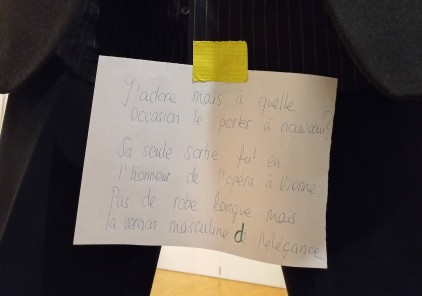 J'adore mais à quelle
occasion le porter à nouveau?
Sa seule sortie fut en
l'honneur de l'opéra à Vienne
Pas de robe longue mais
la version masculine de l'élégance